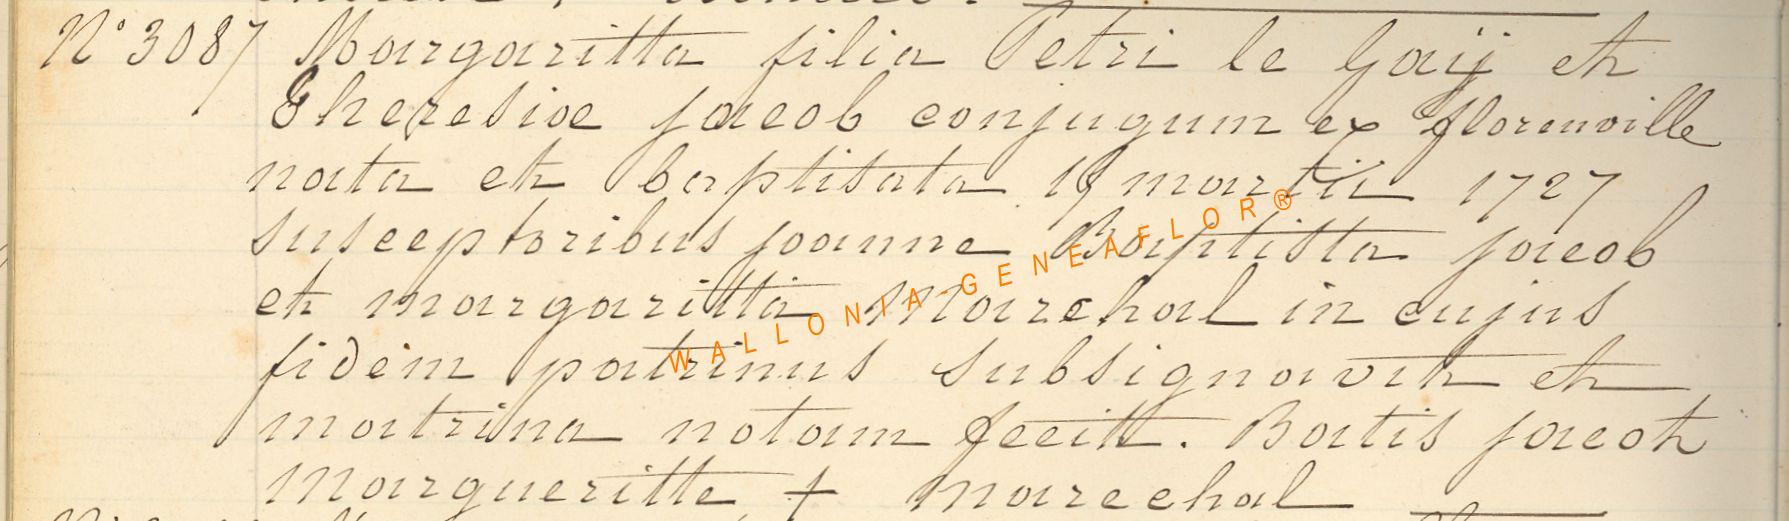 N° 3087 Margaritta filia Petri le Gaij et
Theresiae jacob conjugum ex florenville
nata et baptisata martii 1727
susceptoribus joanne Baptista jacob
et margaritta Marechal in cujus
fidem patrinus subsignavit et
matrina notam fecitt. Batis jacot
Margueritte + marechal
WALLONIA-GENEAFLOR®